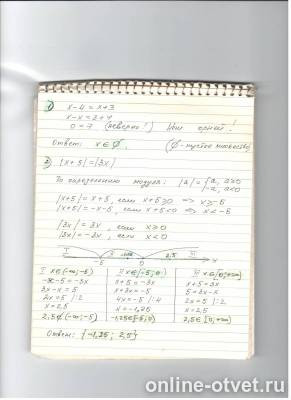 1) x-4=x+3
x-x=2+4
0=7 (неверно!) Нет корней!
Ответ: x∈∅. (∅-пустое множество)
2) |x+5|=|3x|
По определению модуля: |a|={a, a≥0
-a, a<0
|x+5|=x+5, если x+5≥0 => x≥-5
|x+5|=-x-5, если x+5<0 => x<-5
|3x|=3x, если x≥0
|3x|=-3x, если x<0
I II 2,5 III
-5 0
I x∈(-∞;-5) II x∈[-5;0) III x∈[0;+∞)
-x-5=-3x x+5=-3x x+5=3x
3x-x=5 x+3x=-5 5=3x-x
2x=5 |:2 4x=-5 |:4 2x=5 |:2
x=2,5 x=-1,25 x=2,5
2,5∉(-∞;-5) -1,25∈[-5;0) 2,5∈[0;+∞)
Ответ: {-1,25; 2,5}
online-otvet.ru